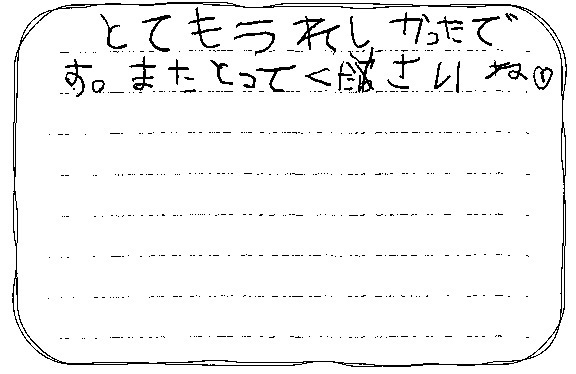 とてもうれしかったで
す。またとってくださいね♡